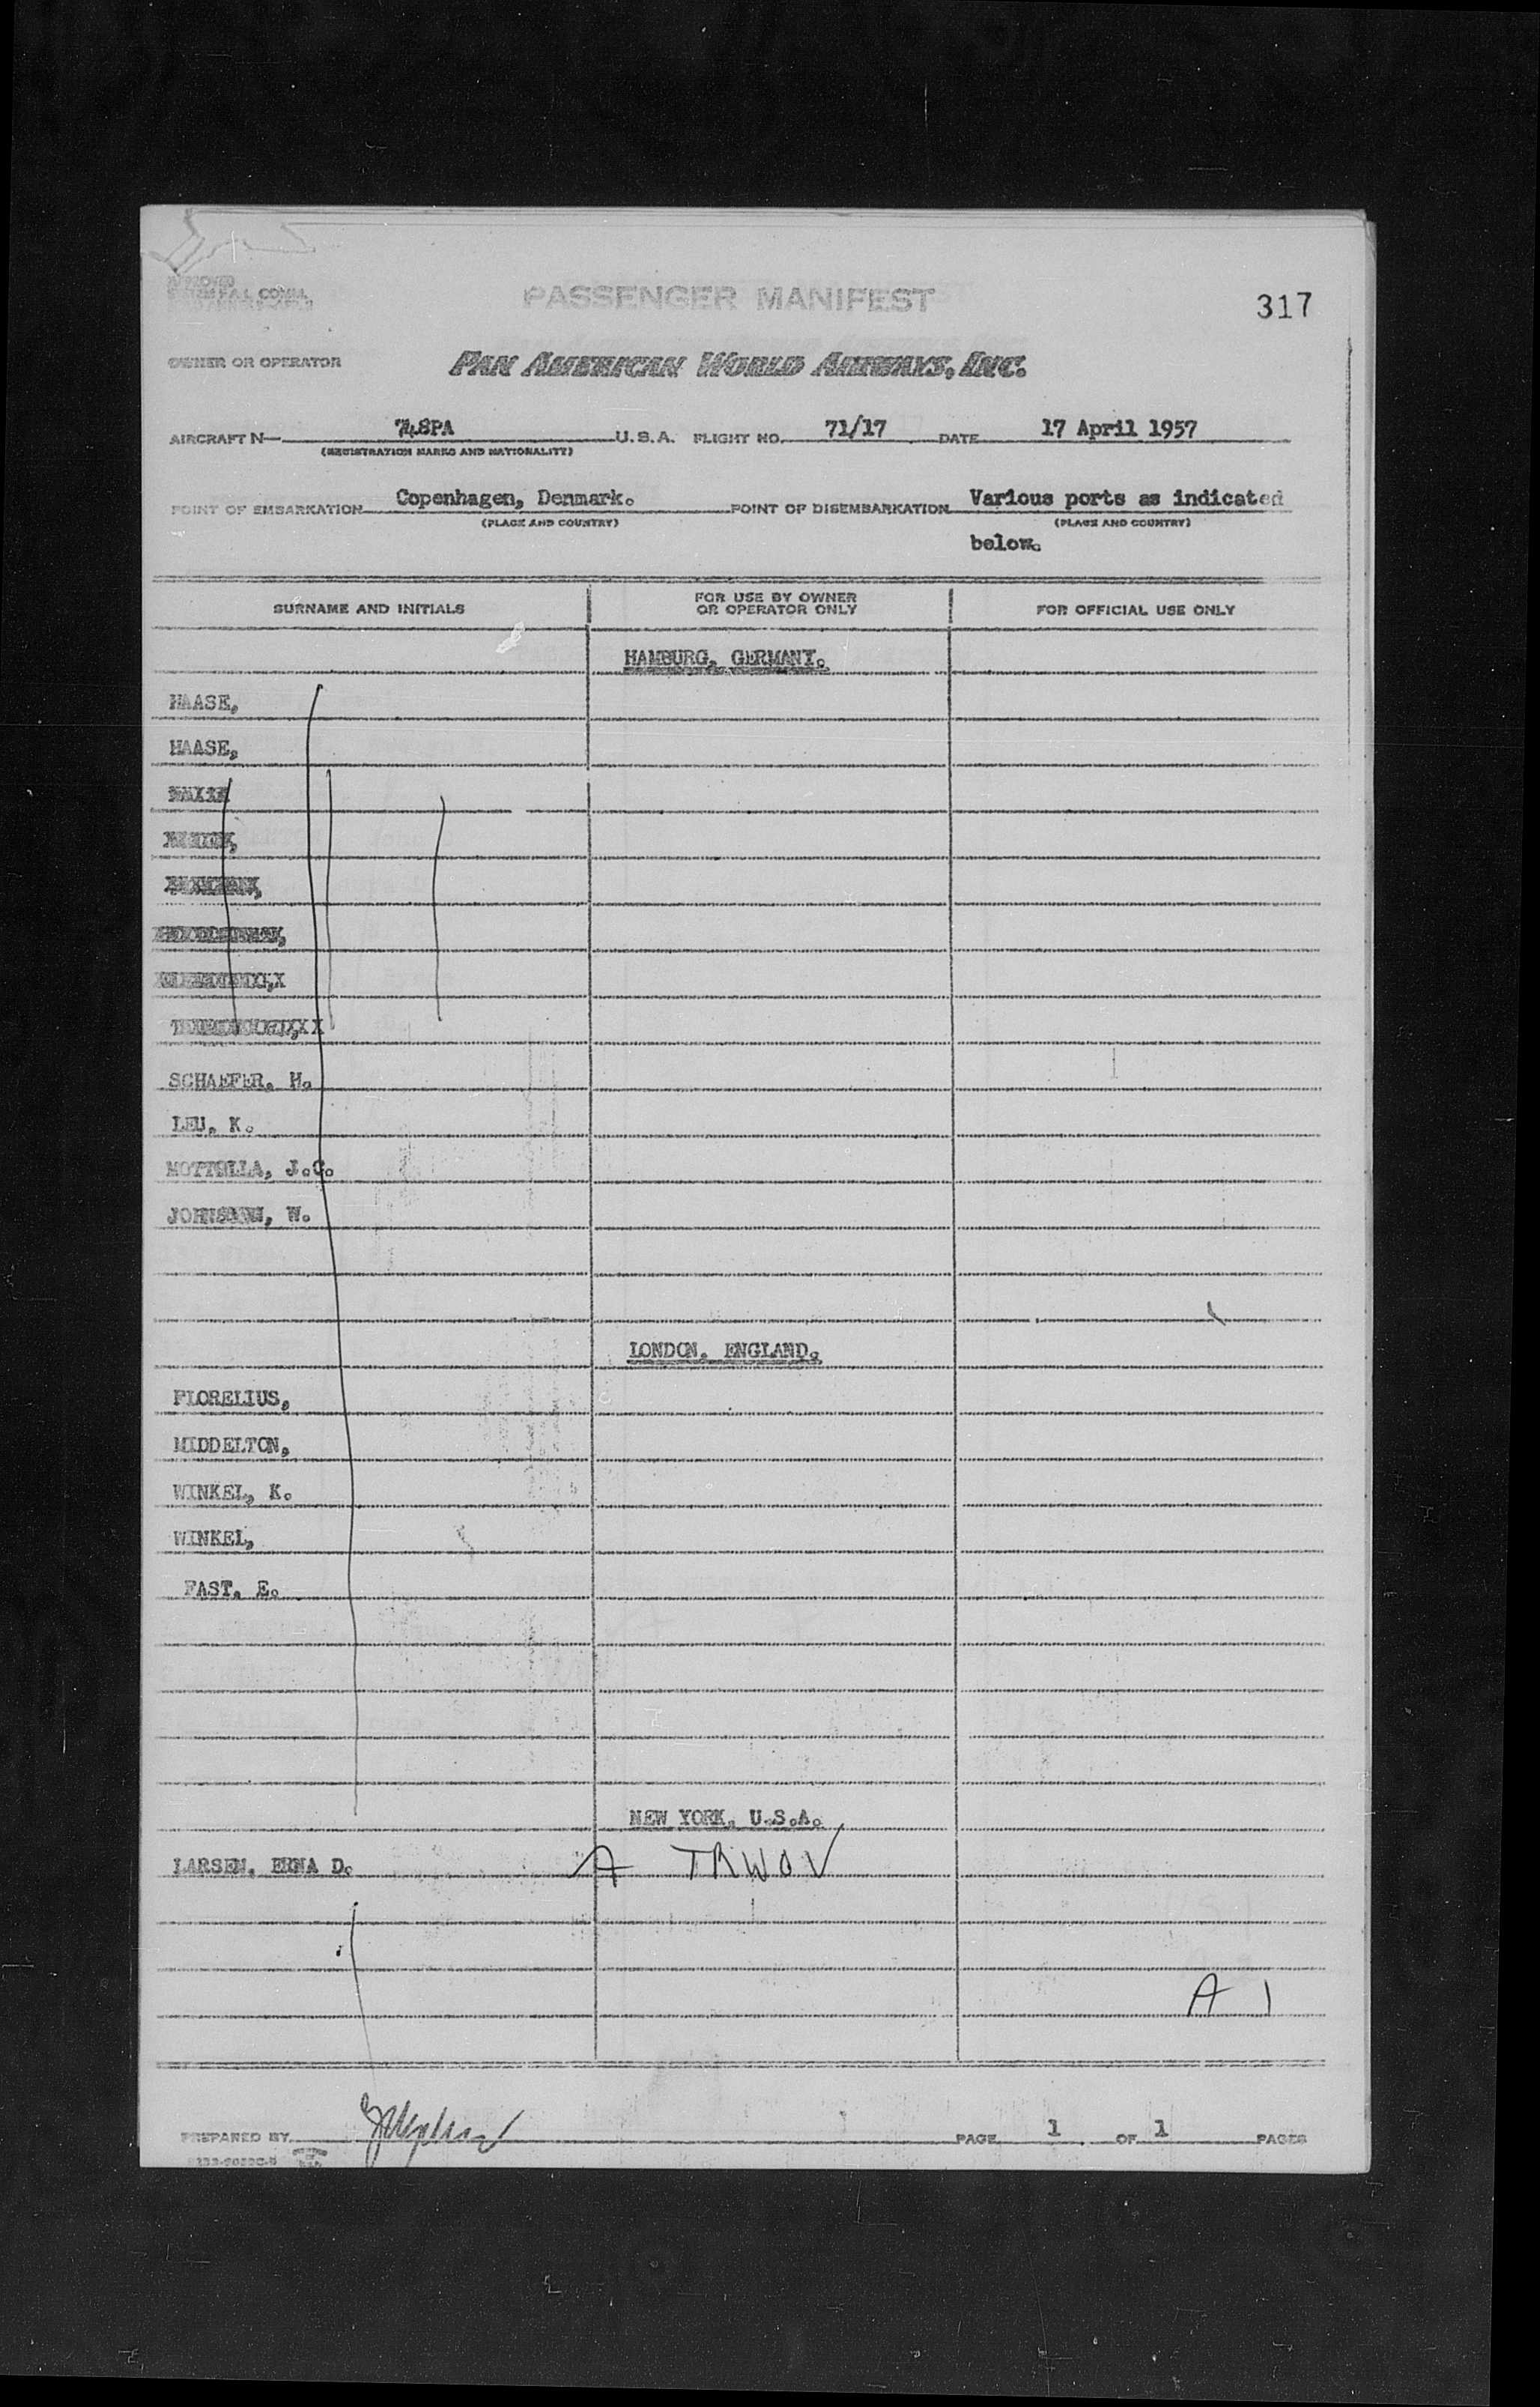 APPROVED
PASSENGER MANIFEST
317
OWNER OR OPERATOR PAN AMERICAN WORLD AIRWAYS, INC.
AIRCRAFT N- U.S.A. FLIGHT NO. 71/17 DATE 17 April 1957
(REGISTRATION MARKS AND NATIONALITY)
POINT OF EMBARKATION Copenhagen, Denmark. POINT OF DISEMBARKATION Various ports as indicated
(PLACE AND COUNTRY) (PLACE AND COUNTRY)
below.
SURNAME AND INITIALS FOR USE BY OWNER OR OPERATOR ONLY FOR OFFICIAL USE ONLY
HAMBURG, GERMANY.
HAASE,
HAASE,
SCHAEFER, H.
LEU, K.
MOTTOLLA, J.C.
W.
LONDON, ENGLAND.
FLORELIUS,
MIDDELTON,
WINKEL, K.
WINKEL,
FAST, E.
NEW YORK, U.S.A.
LARSEN, ERNA D. A TRWOV
A 1
PREPARED BY PAGE 1 OF 1 PAGES